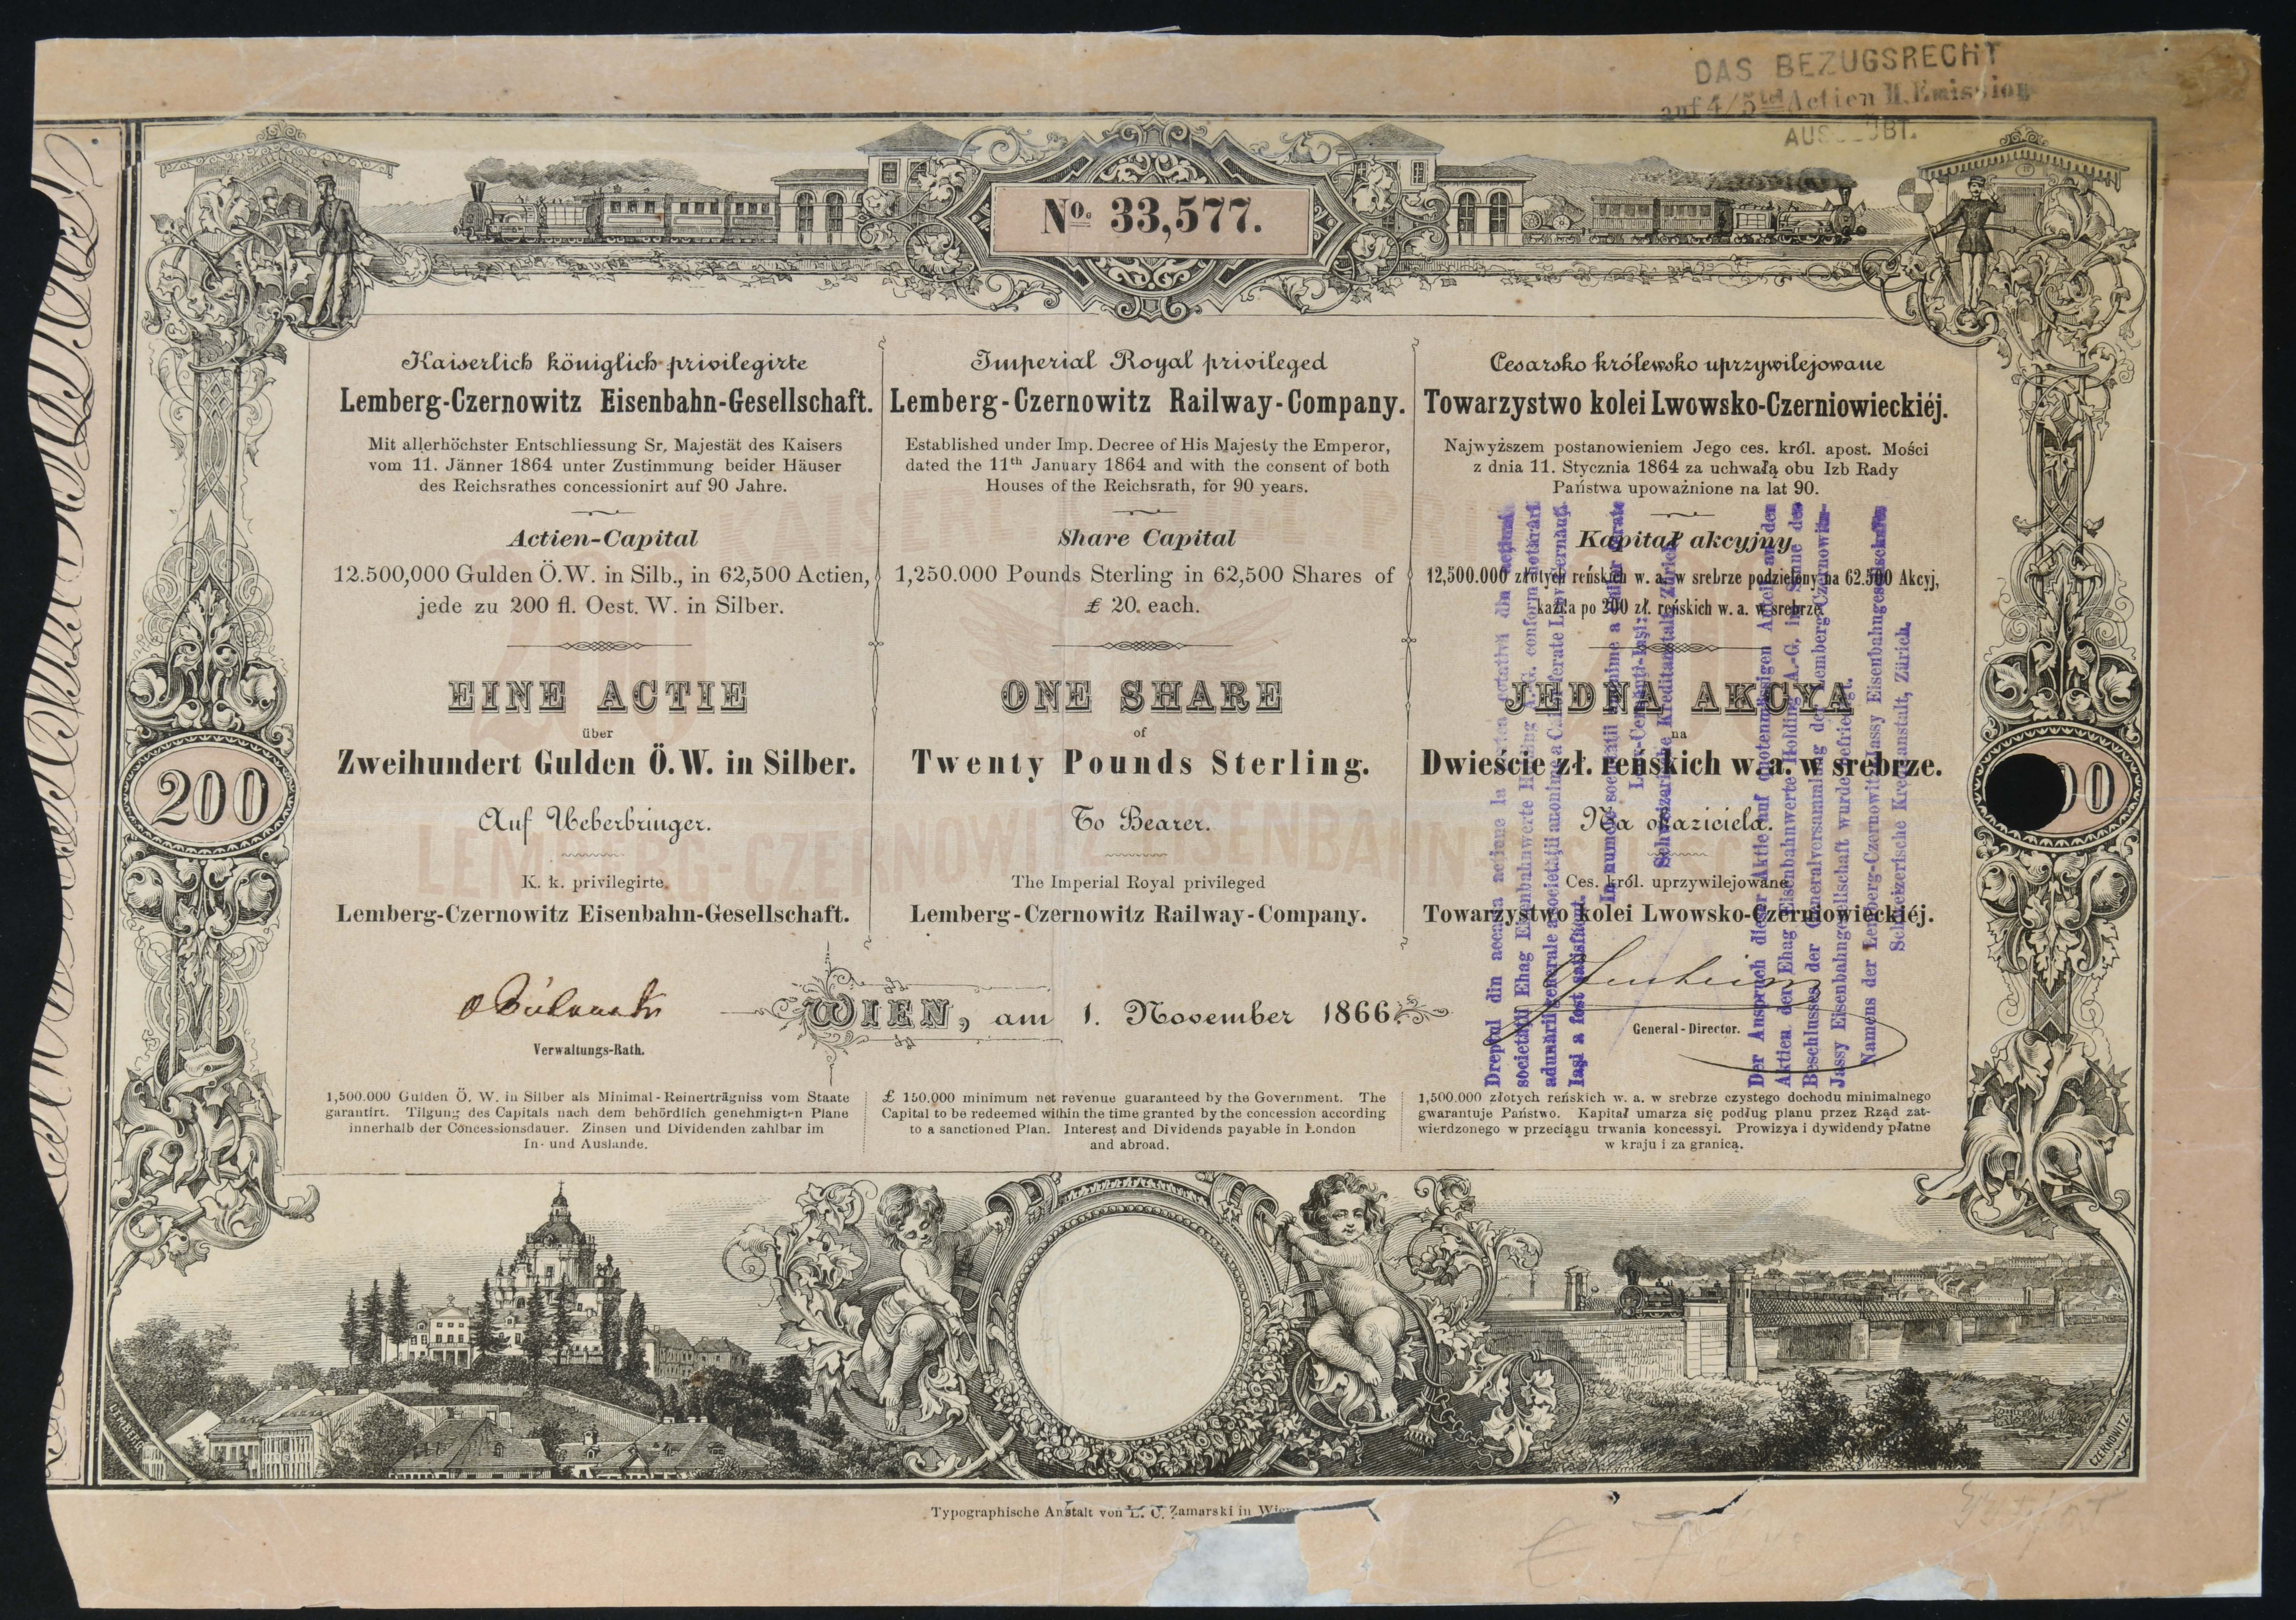 DAS BEZUGSRECHT
auf 4/5tel Actien II. Emission
No. 33,577.
Kaiserlich königlich privilegirte
Lemberg-Czernowitz Eisenbahn-Gesellschaft.
Mit allerhöchster Entschliessung Sr. Majestät des Kaisers
vom 11. Jänner 1864 unter Zustimmung beider Häuser
des Reichsrathes concessionirt auf 90 Jahre.
Actien-Capital
12.500,000 Gulden Ö.W. in Silb., in 62,500 Actien,
jede zu 200 fl. Oest. W. in Silber.
EINE ACTIE
über
Zweihundert Gulden Ö.W. in Silber.
Auf Ueberbringer.
K. k. privilegirte
Lemberg-Czernowitz Eisenbahn-Gesellschaft.
Verwaltungs-Rath.
1,500.000 Gulden Ö. W. in Silber als Minimal-Reinerträgniss vom Staate
garantirt. Tilgung des Capitals nach dem behördlich genehmigten Plane
innerhalb der Concessionsdauer. Zinsen und Dividenden zahlbar im
In- und Auslande.
Imperial Royal privileged
Lemberg-Czernowitz Railway-Company.
Established under Imp. Decree of His Majesty the Emperor,
dated the 11th January 1864 and with the consent of both
Houses of the Reichsrath, for 90 years.
Share Capital
1,250.000 Pounds Sterling in 62,500 Shares of
£ 20. each.
ONE SHARE
of
Twenty Pounds Sterling.
To Bearer.
The Imperial Royal privileged
Lemberg-Czernowitz Railway-Company.
WIEN, am 1. November 1866.
£ 150.000 minimum net revenue guaranteed by the Government. The
Capital to be redeemed within the time granted by the concession according
to a sanctioned Plan. Interest and Dividends payable in London
and abroad.
Cesarsko królewsko uprzywilejowane
Towarzystwo kolei Lwowsko-Czerniowieckiéj.
Najwyższem postanowieniem Jego ces. król. apost. Mości
z dnia 11. Stycznia 1864 za uchwałą obu Izb Rady
Państwa upoważnione na lat 90.
Kapitał akcyjny
12,500.000 złotych reńskich w. a. w srebrze podzielony na 62.500 Akcyj,
każda po 200 zł. reńskich w. a. w srebrze
JEDNA AKCYA
na
Dwieście zł. reńskich w. a. w srebrze.
Na okaziciela.
Ces. król. uprzywilejowane
Towarzystwo kolei Lwowsko-Czerniowieckiéj.
General-Director.
1,500.000 złotych reńskich w. a. w srebrze czystego dochodu minimalnego
gwarantuje Państwo. Kapitał umarza się podług planu przez Rząd zat-
wierdzonego w przeciągu trwania koncessyi. Prowizya i dywidendy płatne
w kraju i za granicą.
Der Anspruch dieser Aktie auf quotenmässigen Anteil an den
Aktien der Ehag Eisenbahnwerte Holding A.-G. im Sinne des
Beschlusses der Generalversammlung der Lemberg-Czernowitz-
Jassy Eisenbahngesellschaft wurde befriedigt.
Namens der Lemberg-Czernowitz-Jassy Eisenbahngesellschaft
Schweizerische Kreditanstalt, Zürich.
200
LEMBERG
CZERNOWITZ
KAISERL KÖNIGL PRIV
LEMBERG-CZERNOWITZ EISENBAHN-
Typographische Anstalt von L. C. Zamarski in Wien